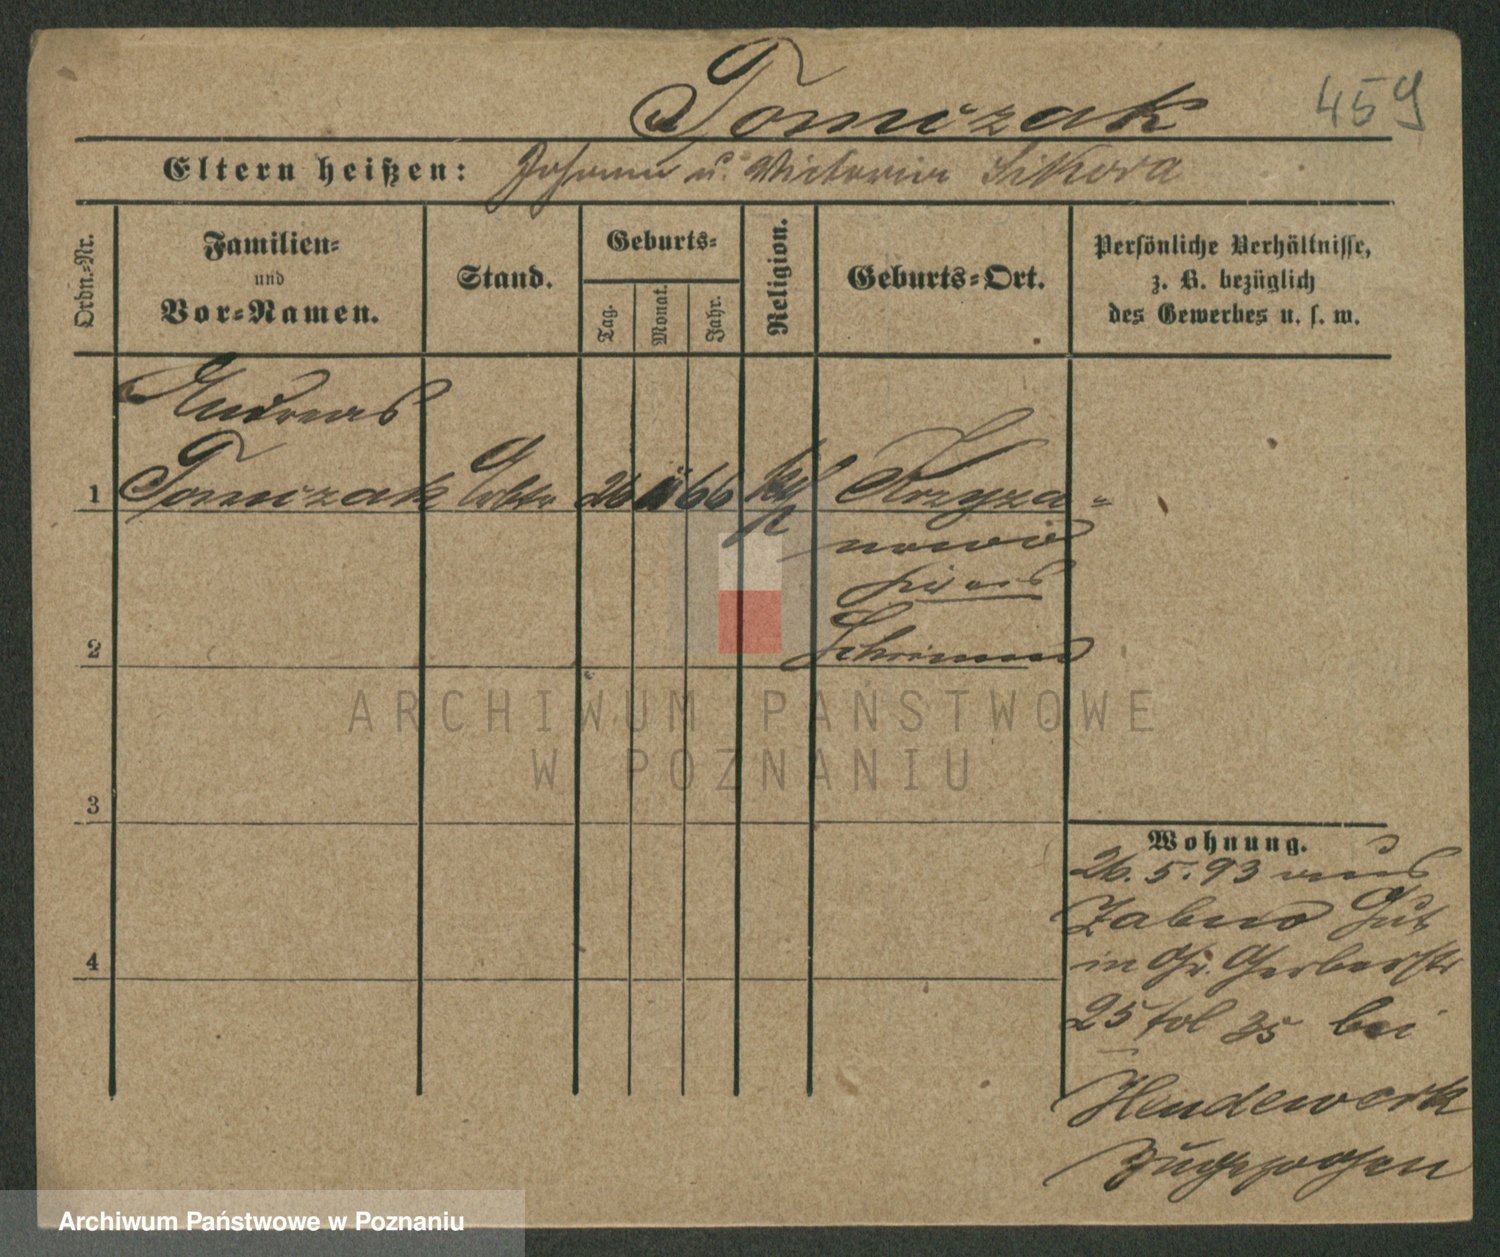 Tomczak
459
Eltern heißen: Johann u. Victoria Sikora
Ordn.-Nr.
Familien-
und
Vor-Namen.
Stand.
Geburts-
Tag.
Monat.
Jahr.
Religion.
Geburts-Ort.
Persönliche Verhältnisse,
z. B. bezüglich
des Gewerbes u. s. w.
Andreas
1 Tomczak Arbtr 26 66 Krzyza-
nowo
Kreis
2 Schrimm
3
4
Wohnung.
26.5.93 aus
Zabno Gut
in Gr. Gerberstr
25 fol 35 bei
Hendewerk
Zugezogen
ARCHIWUM PAŃSTWOWE
W POZNANIU
Archiwum Państwowe w Poznaniu